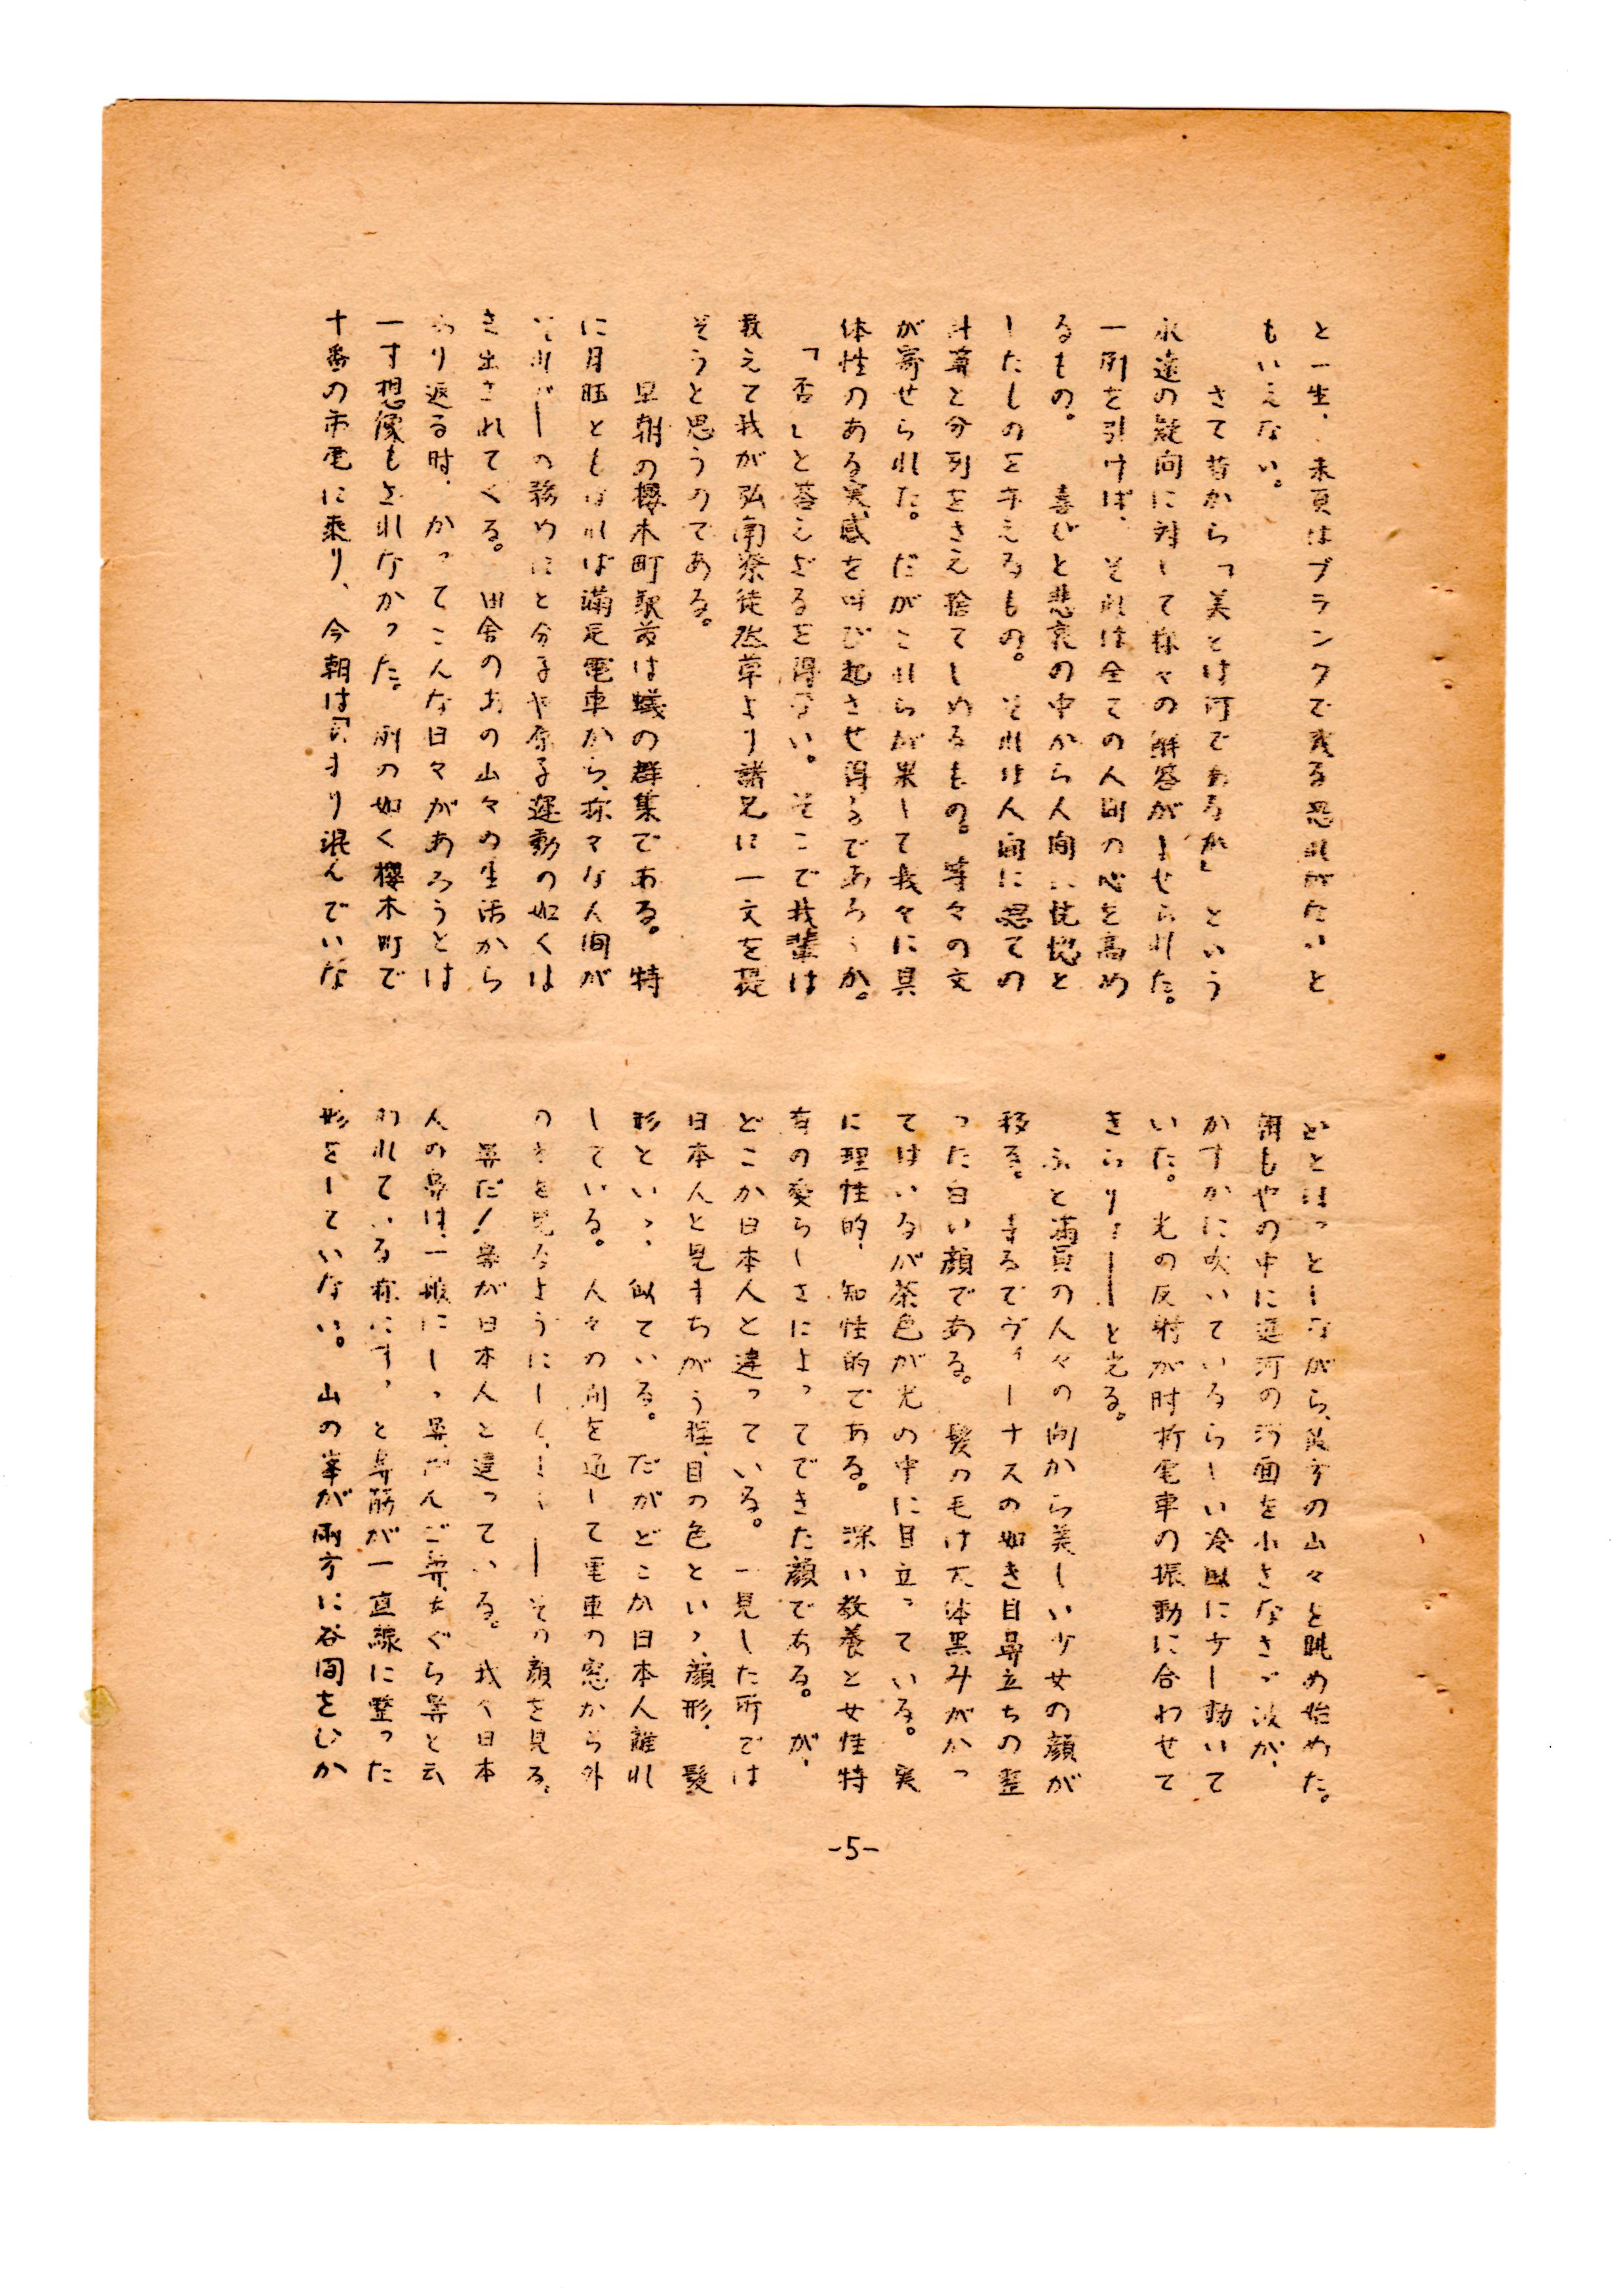 と一生、未頁はブランクで残る恐れがないと
もいえない。
さて昔から「美とは何であるか」という
永遠の疑问に対して様々の解答がよせられた。
一例を引けば、それは全ての人間の心を高め
るもの。喜びと悲哀の中から人間に恍惚と
したものを与えるもの。それは人间に忍ての
計算と分別をさえ捨てしめるもの。等々の文
が寄せられた。だがこれらが果して我々に具
体性のある実感を呼び起させ得るであろうか。
「否」と答えざるを得ない。そこで我輩は
敢えて我が弘南寮徒然草より諸兄に一文を提
そうと思うのである。
早朝の櫻木町駅前は蟻の群集である。特
に月旺ともなれば満足電車から、様々な人间が
それゞ―の務めにと分子や原子運動の如くは
き出されてくる。田舎のあの山々の生活から
ふり返る時、かってこんな日々があろうとは
一寸想像もされなかった。例の如く櫻木町で
十番の市電に乗り、今朝はあまり混んでいな
いとほっとしながら、彼方の山々を眺め始めた。
朝もやの中に運河の河面を小さなさゞ波が、
かすかに吹いているらしい冷風に少し動いて
いた。光の反射が时折電車の振動に合わせて
きらりッ――と光る。
ふと満員の人々の间から美しい少女の顔が
移る。まるでヴィーナスの如き目鼻立ちの整
った白い顔である。髪の毛は大体黒みがかっ
てはいるが茶色が光の中に目立っている。実
に理性的、知性的である。深い教養と女性特
有の愛らしさによってできた顔である。が、
どこか日本人と違っている。一見した所では
日本人と見まちがう程、目の色といゝ、顔形、髪
形といゝ、似ている。だがどこか日本人離れ
している。人々の间を通して電車の窓から外
のそを見るようにして――その顔を見る。
鼻だ！鼻が日本人と違っている。我々日本
人の鼻は、一般にしゝ鼻、だんご鼻、あぐら鼻と云
われている様にすっと鼻筋が一直線に整った
形をしていない。山の峯が両方に谷間をひか
-5-